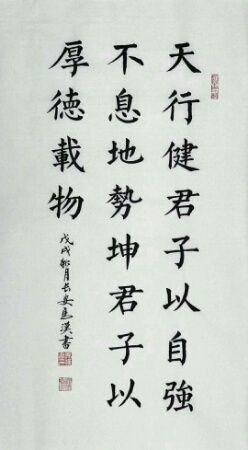 天行健君子以自強
不息地勢坤君子以
厚德載物
戊戌年月長安馬漢書